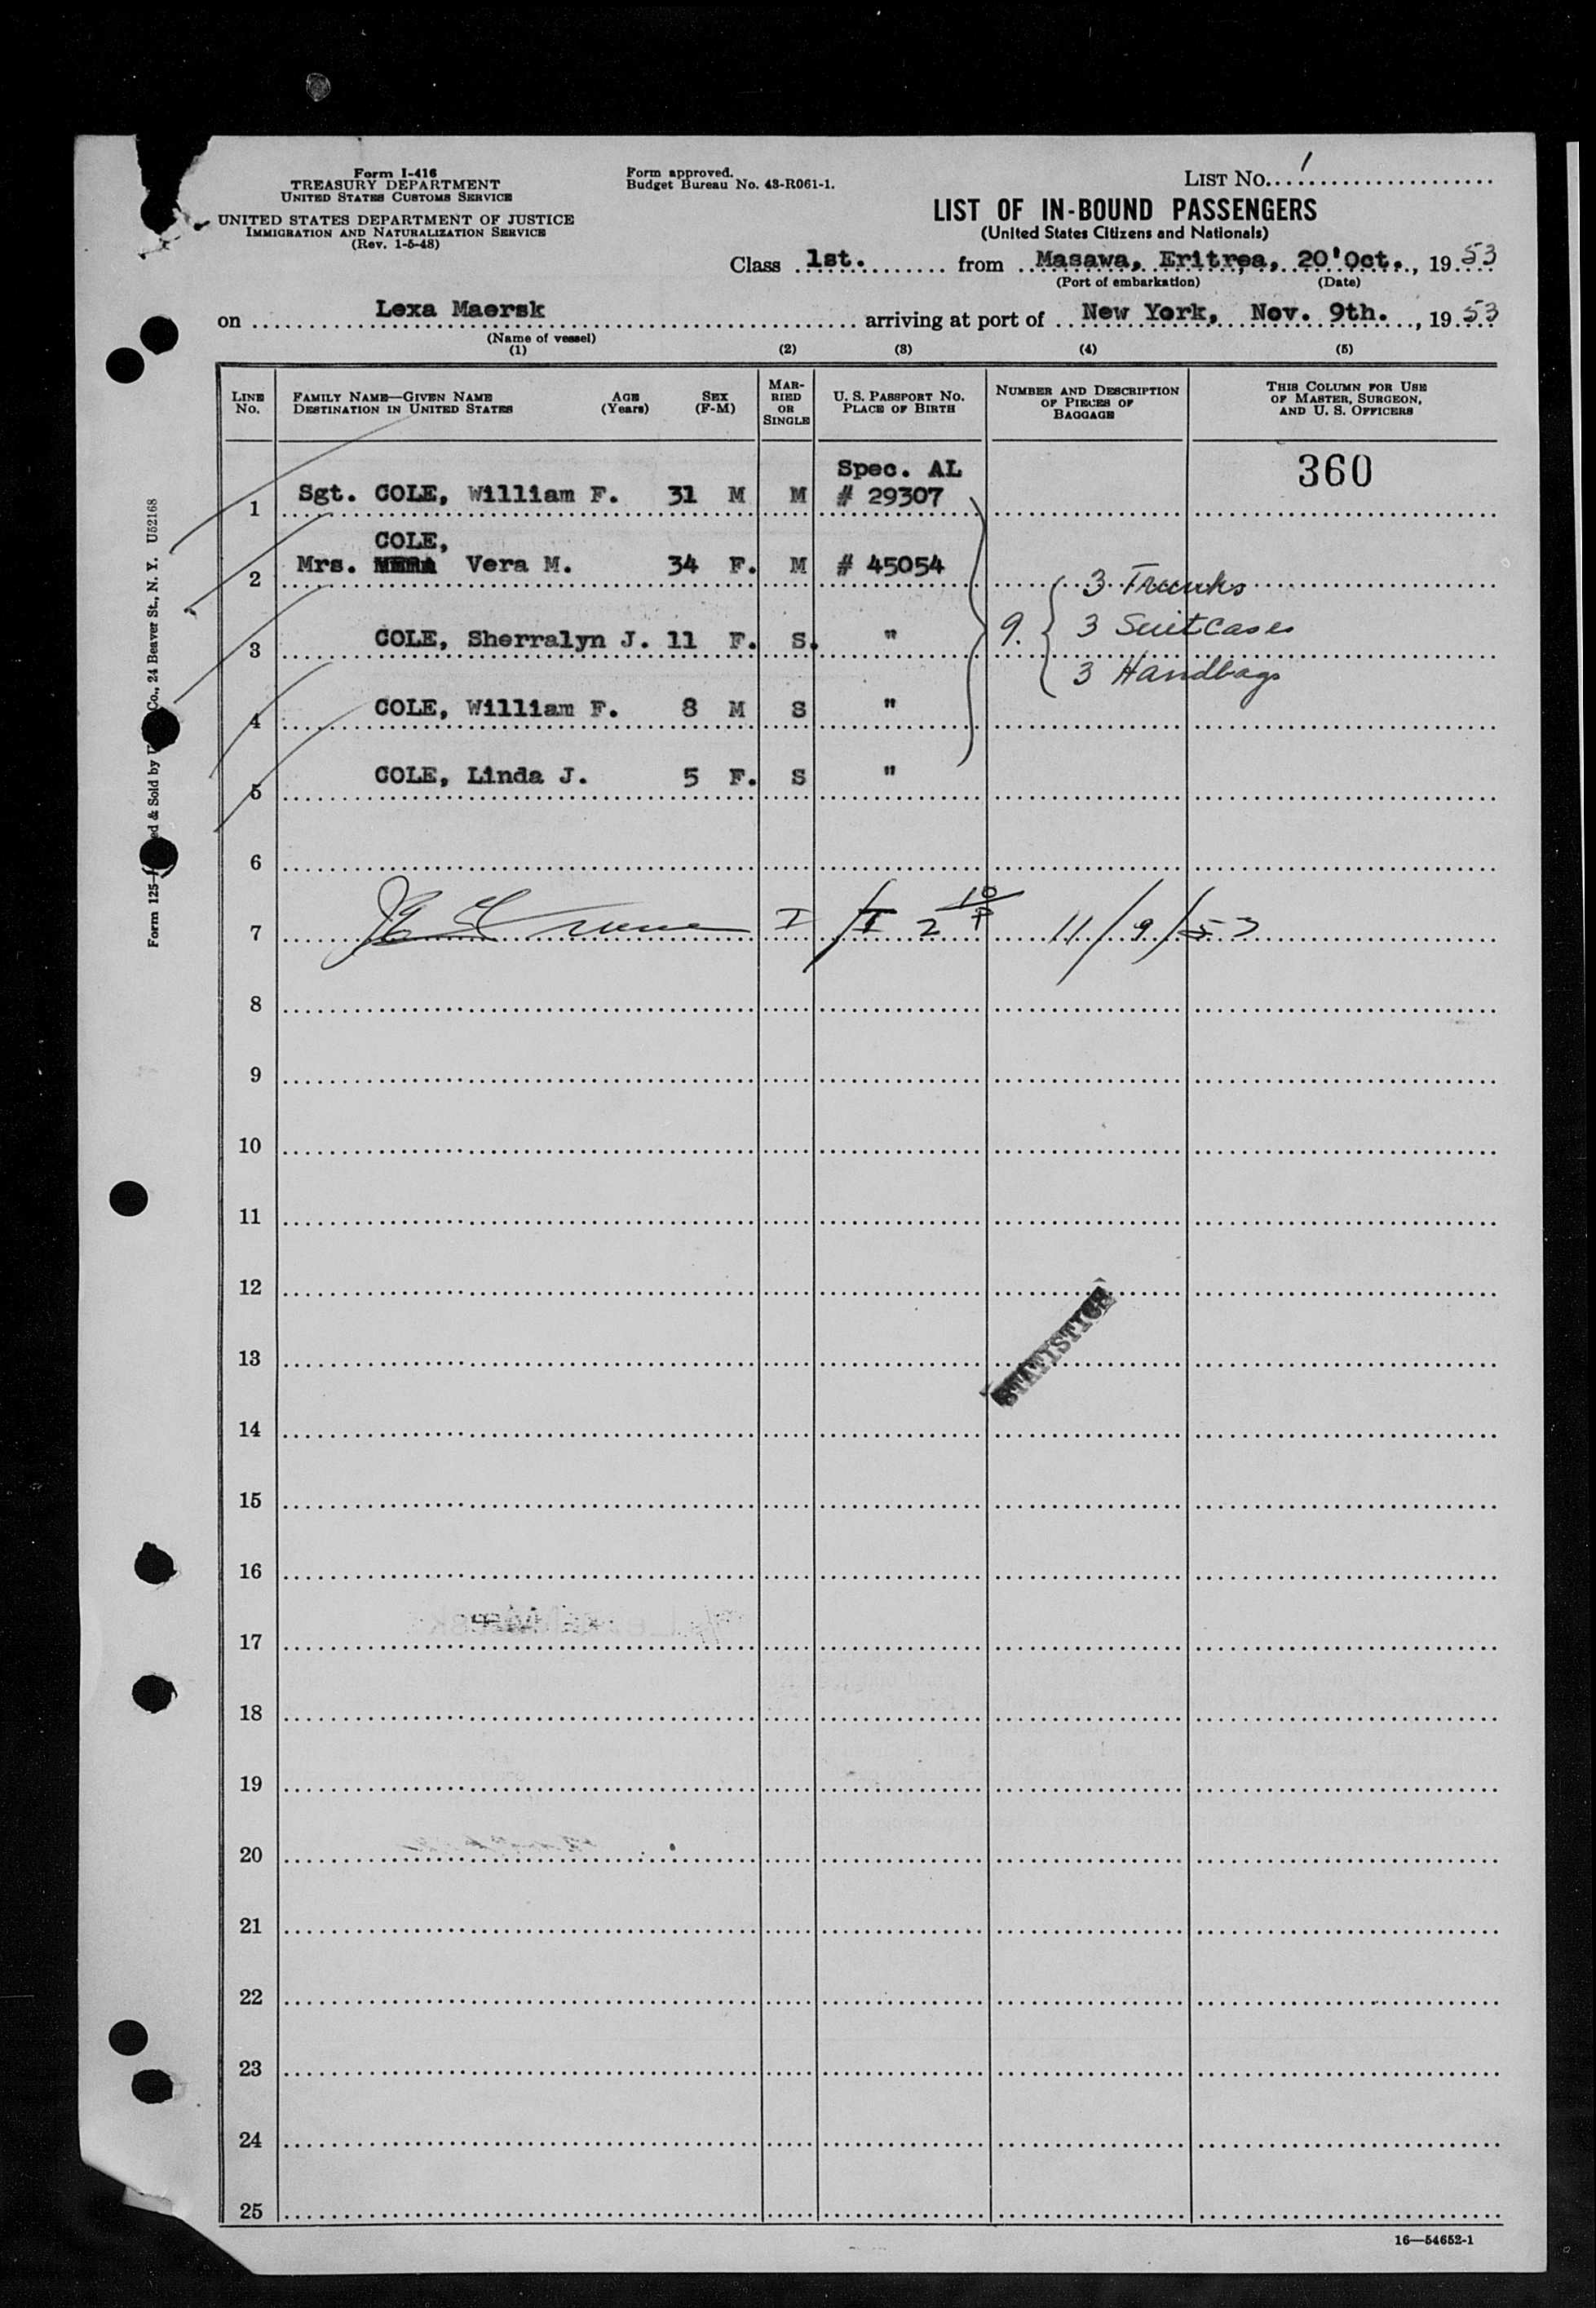 Form I-416
TREASURY DEPARTMENT
UNITED STATES CUSTOMS SERVICE
UNITED STATES DEPARTMENT OF JUSTICE
IMMIGRATION AND NATURALIZATION SERVICE
(Rev. 1-5-48)
Form approved.
Budget Bureau No. 43-R061-1.
LIST No. 1
LIST OF IN-BOUND PASSENGERS
(United States Citizens and Nationals)
Class 1st. from Masawa, Eritrea, 20'Oct., 1953
(Port of embarkation) (Date)
on Lexa Maersk arriving at port of New York, Nov. 9th., 1953
(Name of vessel)
(1) (2) (3) (4) (5)
LINE No. FAMILY NAME—GIVEN NAME DESTINATION IN UNITED STATES AGE (Years) SEX (F-M) MARRIED OR SINGLE U. S. PASSPORT No. PLACE OF BIRTH NUMBER AND DESCRIPTION OF PIECES OF BAGGAGE THIS COLUMN FOR USE OF MASTER, SURGEON, AND U. S. OFFICERS
Spec. AL 360
1 Sgt. COLE, William F. 31 M M # 29307
COLE,
2 Mrs. Vera M. 34 F. M # 45054
3 Trunks
3 COLE, Sherralyn J. 11 F. S. " 9. 3 Suitcases
3 Handbags
4 COLE, William F. 8 M S "
5 COLE, Linda J. 5 F. S "
6
7 I 11/9/53
8
9
10
11
12
13 STATISTICS
14
15
16
17
18
19
20
21
22
23
24
25
16—54652-1
Form 125 ed & Sold by Co., 24 Beaver St., N. Y. U52168